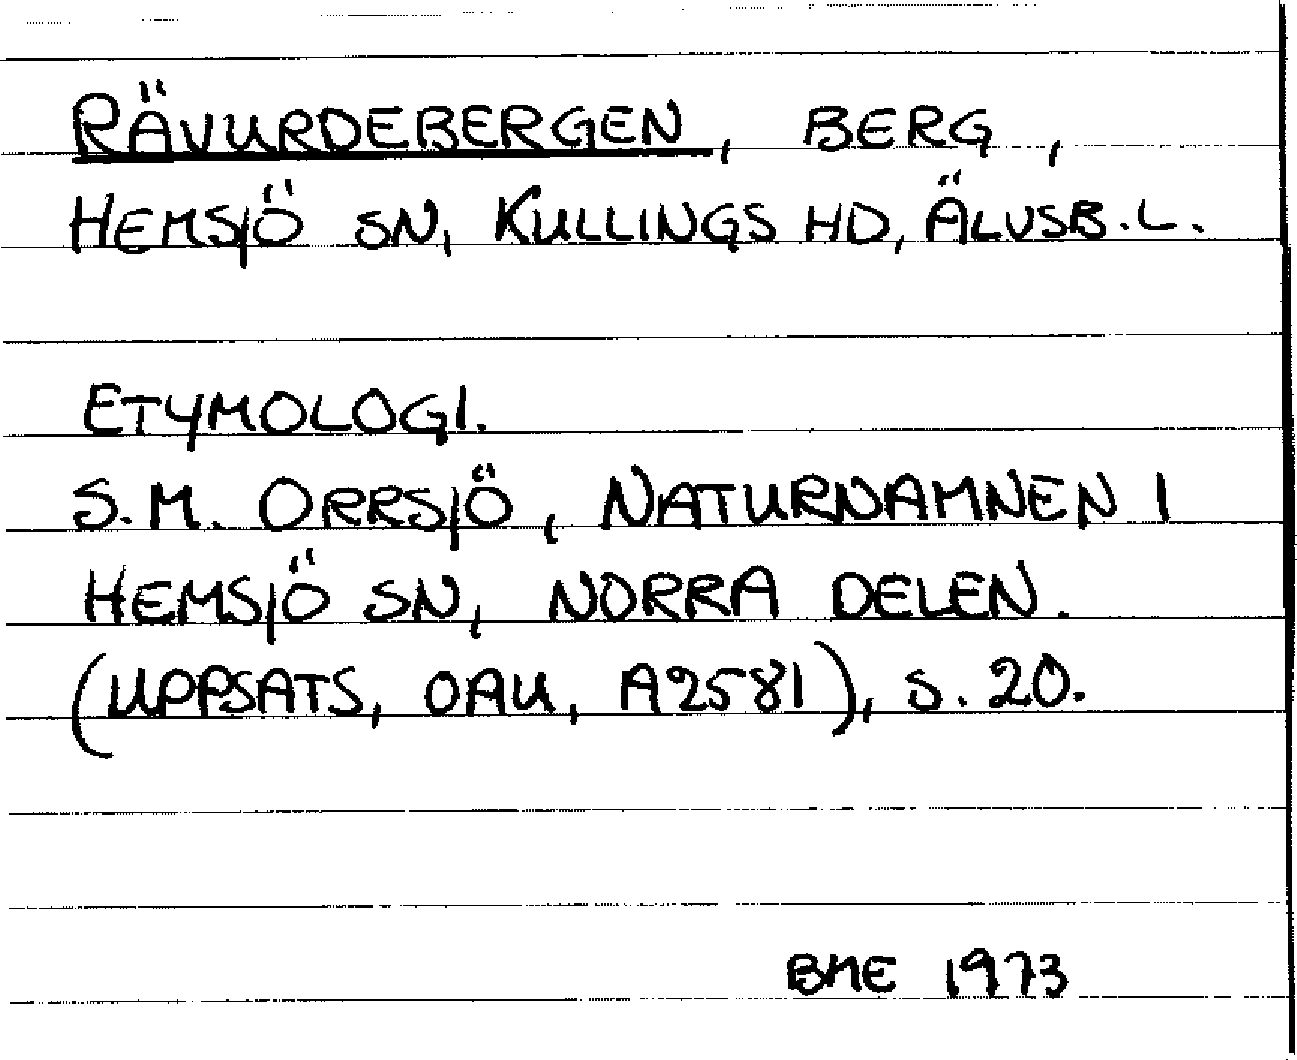 RÄVURDEBERGEN, BERG,
HEMSJÖ SN, KULLINGS HD, ÄLVSB.L.
ETYMOLOGI.
S.M. ORRSJÖ, NATURNAMNEN I
HEMSJÖ SN, NORRA DELEN.
(UPPSATS, OAU, A2581), S. 20.
BME 1973